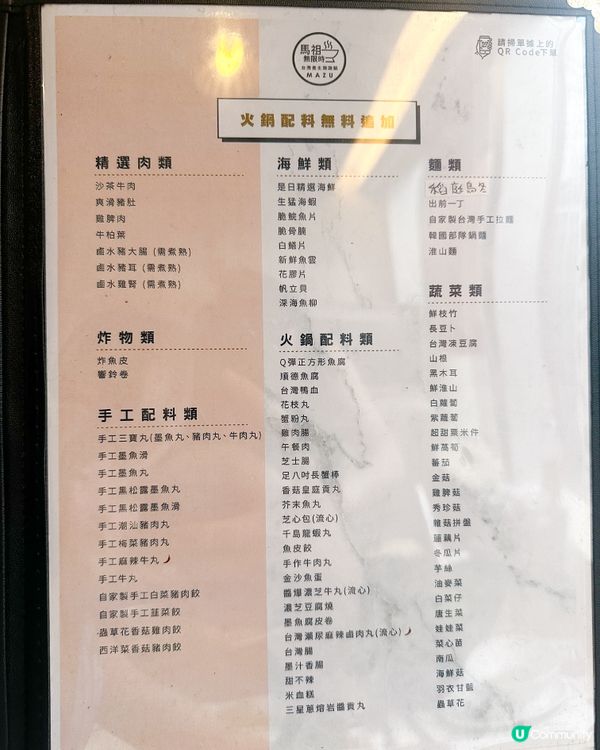 馬祖
無限時
台灣養生鍋物館
MAZU
請掃單據上的
QR Code下單
火鍋配料無料追加
精選肉類
沙茶牛肉
爽滑豬肚
雞脾肉
牛柏葉
鹵水豬大腸 (需煮熟)
鹵水豬耳 (需煮熟)
鹵水雞腎 (需煮熟)
炸物類
炸魚皮
響鈴卷
手工配料類
手工三寶丸(墨魚丸、豬肉丸、牛肉丸)
手工墨魚滑
手工墨魚丸
手工黑松露墨魚丸
手工黑松露墨魚滑
手工潮汕豬肉丸
手工梅菜豬肉丸
手工麻辣牛丸
手工牛丸
自家製手工白菜豬肉餃
自家製手工韮菜餃
蟲草花香菇雞肉餃
西洋菜香菇豬肉餃
海鮮類
是日精選海鮮
生猛海蝦
脆鯇魚片
脆骨腩
白鱔片
新鮮魚雲
花膠片
帆立貝
深海魚柳
火鍋配料類
Q彈正方形魚腐
順德魚腐
台灣鴨血
花枝丸
蟹粉丸
雞肉腸
午餐肉
芝士腸
足八吋長蟹棒
香菇皇庭貢丸
芥末魚丸
芝心包(流心)
千島龍蝦丸
魚皮餃
手作牛肉丸
金沙魚蛋
醬爆濃芝牛丸(流心)
濃芝豆腐燒
墨魚腐皮卷
台灣瀨尿麻辣鹵肉丸(流心)
台灣腸
墨汁香腸
甜不辣
米血糕
三星蔥熔岩醬貢丸
麵類
稻庭烏冬
出前一丁
自家製台灣手工拉麵
韓國部隊鍋麵
淮山麵
蔬菜類
鮮枝竹
長豆卜
台灣凍豆腐
山根
黑木耳
鮮淮山
白蘿蔔
紫蘿蔔
超甜粟米件
鮮萵筍
蕃茄
金菇
雞脾菇
秀珍菇
雜菇拼盤
蓮藕片
冬瓜片
芋絲
油麥菜
白菜仔
唐生菜
娃娃菜
菜心苗
南瓜
海鮮菇
羽衣甘藍
蟲草花
U Community